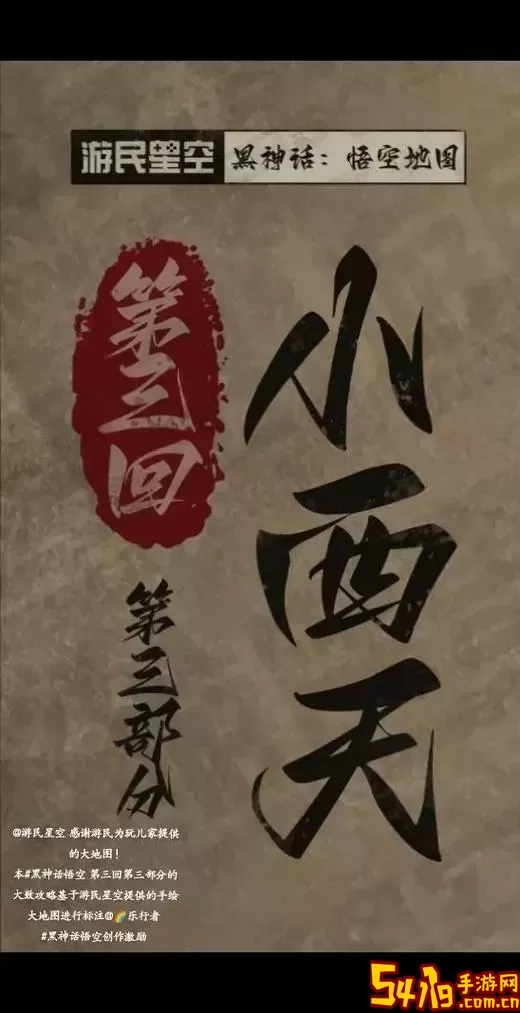 游民星空 黑神话：悟空地图
小西天
第三回
第三部分
@游民星空 感谢游民为玩儿家提供
的大地图！
本#黑神话悟空 第三回第三部分的
大致攻略基于游民星空提供的手绘
大地图进行标注@🌈乐行者
#黑神话悟空创作激励
5419手游网
5419.com.cn